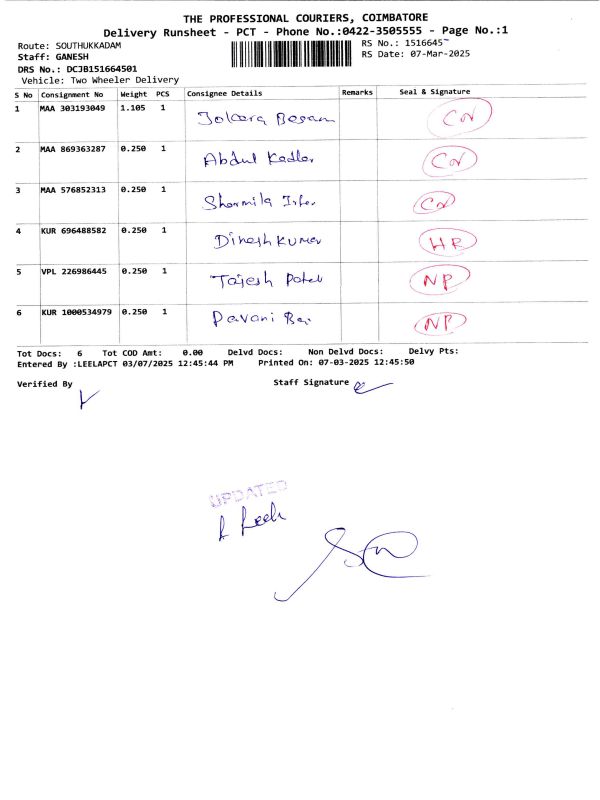 THE PROFESSIONAL COURIERS, COIMBATORE
Delivery Runsheet - PCT - Phone No.:0422-3505555 - Page No.:1
Route: SOUTHUKKADAM
RS No.: 1516645
Staff: GANESH
RS Date: 07-Mar-2025
DRS No.: DCJB151664501
Vehicle: Two Wheeler Delivery
S No Consignment No Weight PCS Consignee Details Remarks Seal & Signature
1 MAA 303193049 1.105 1 CN
2 MAA 869363287 0.250 1 Abdul Kadlar CN
3 MAA 576852313 0.250 1 Sharmila CN
4 KUR 696488582 0.250 1 Dinesh Kumar HR
5 VPL 226986445 0.250 1 Patel NP
6 KUR 1000534979 0.250 1 Pavani NP
Tot Docs: 6 Tot COD Amt: 0.00 Delvd Docs: Non Delvd Docs: Delvy Pts:
Entered By :LEELAPCT 03/07/2025 12:45:44 PM Printed On: 07-03-2025 12:45:50
Verified By Staff Signature
UPDATED